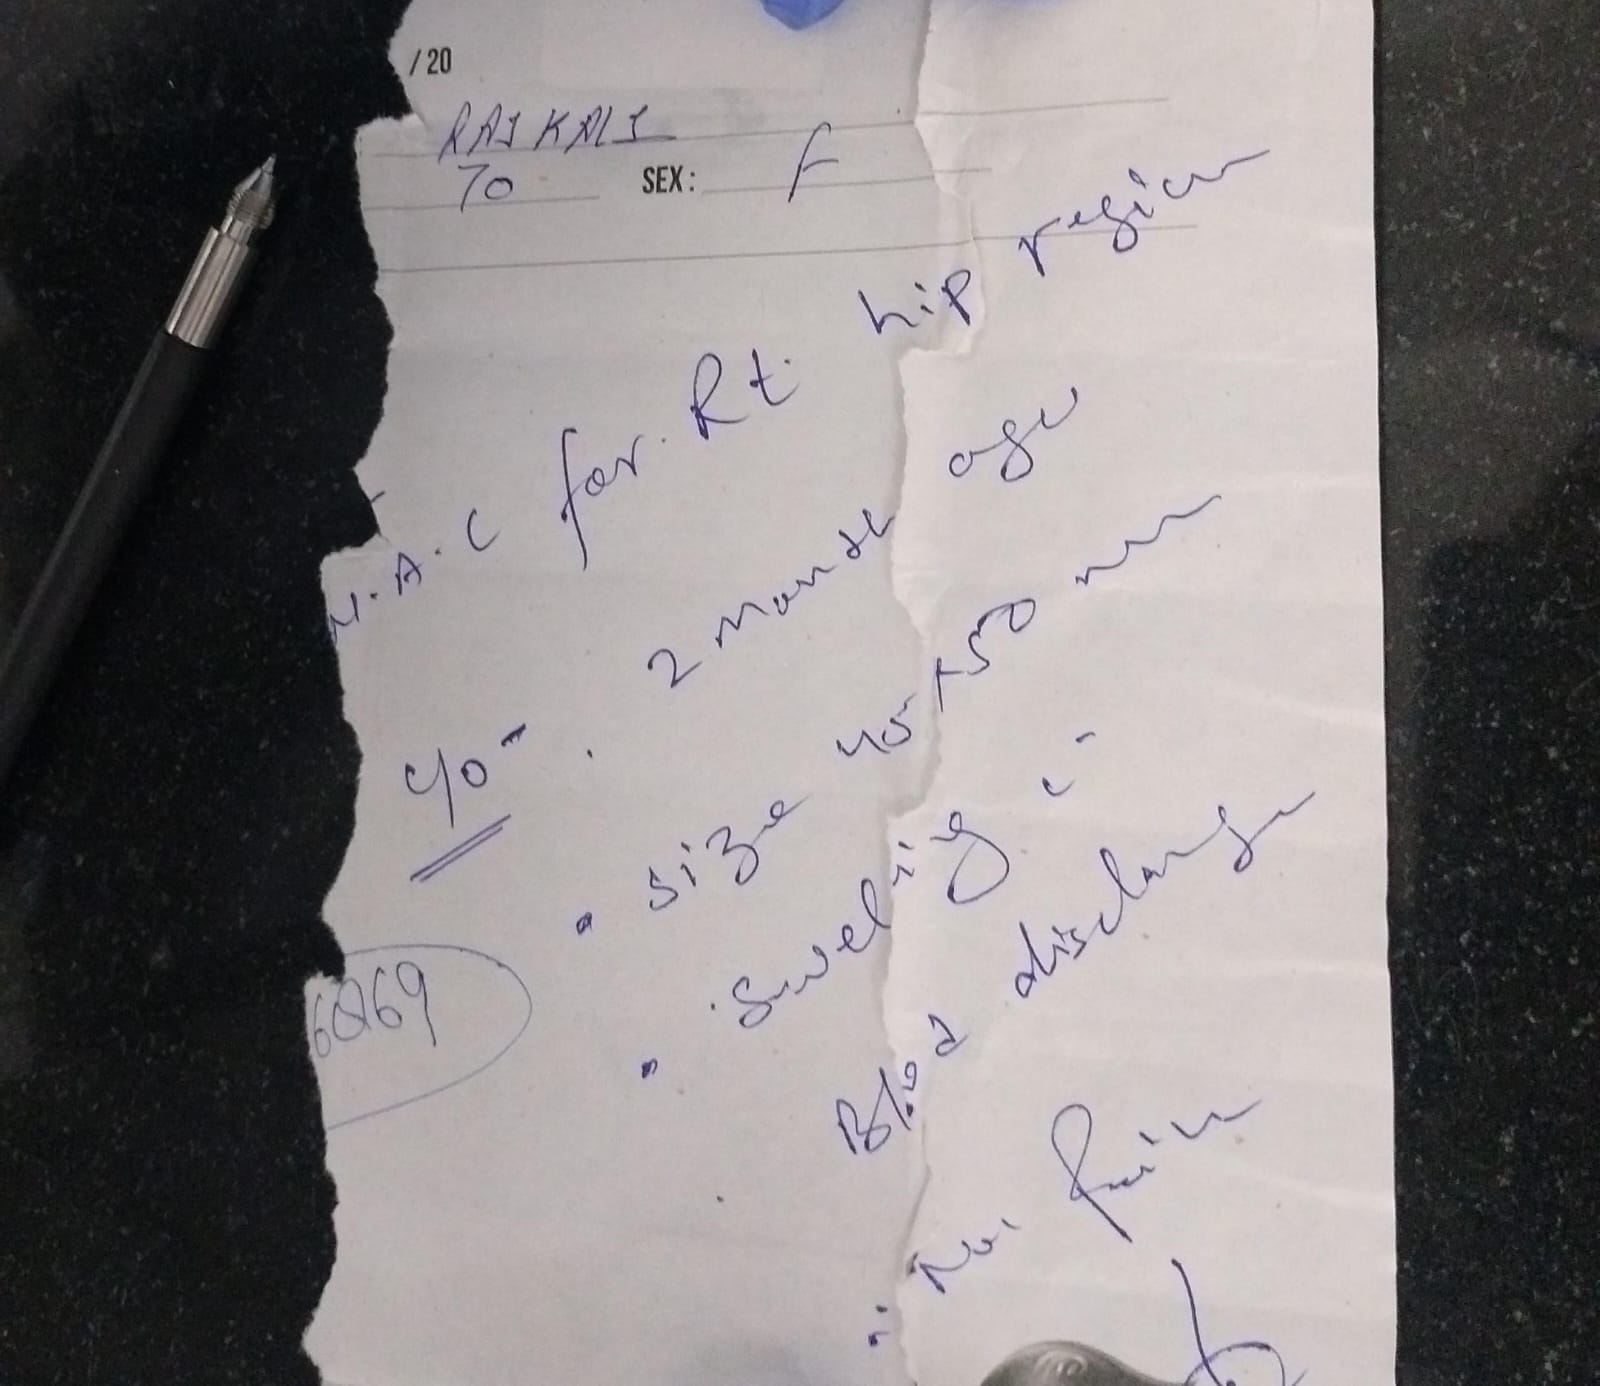 /20
RAJ KALI
70 SEX: F
N.A.C for Rt. hip region
40-
2 Month ago
size 45 x 50 mm
Sweling c-
Blod discharge
No. Pain